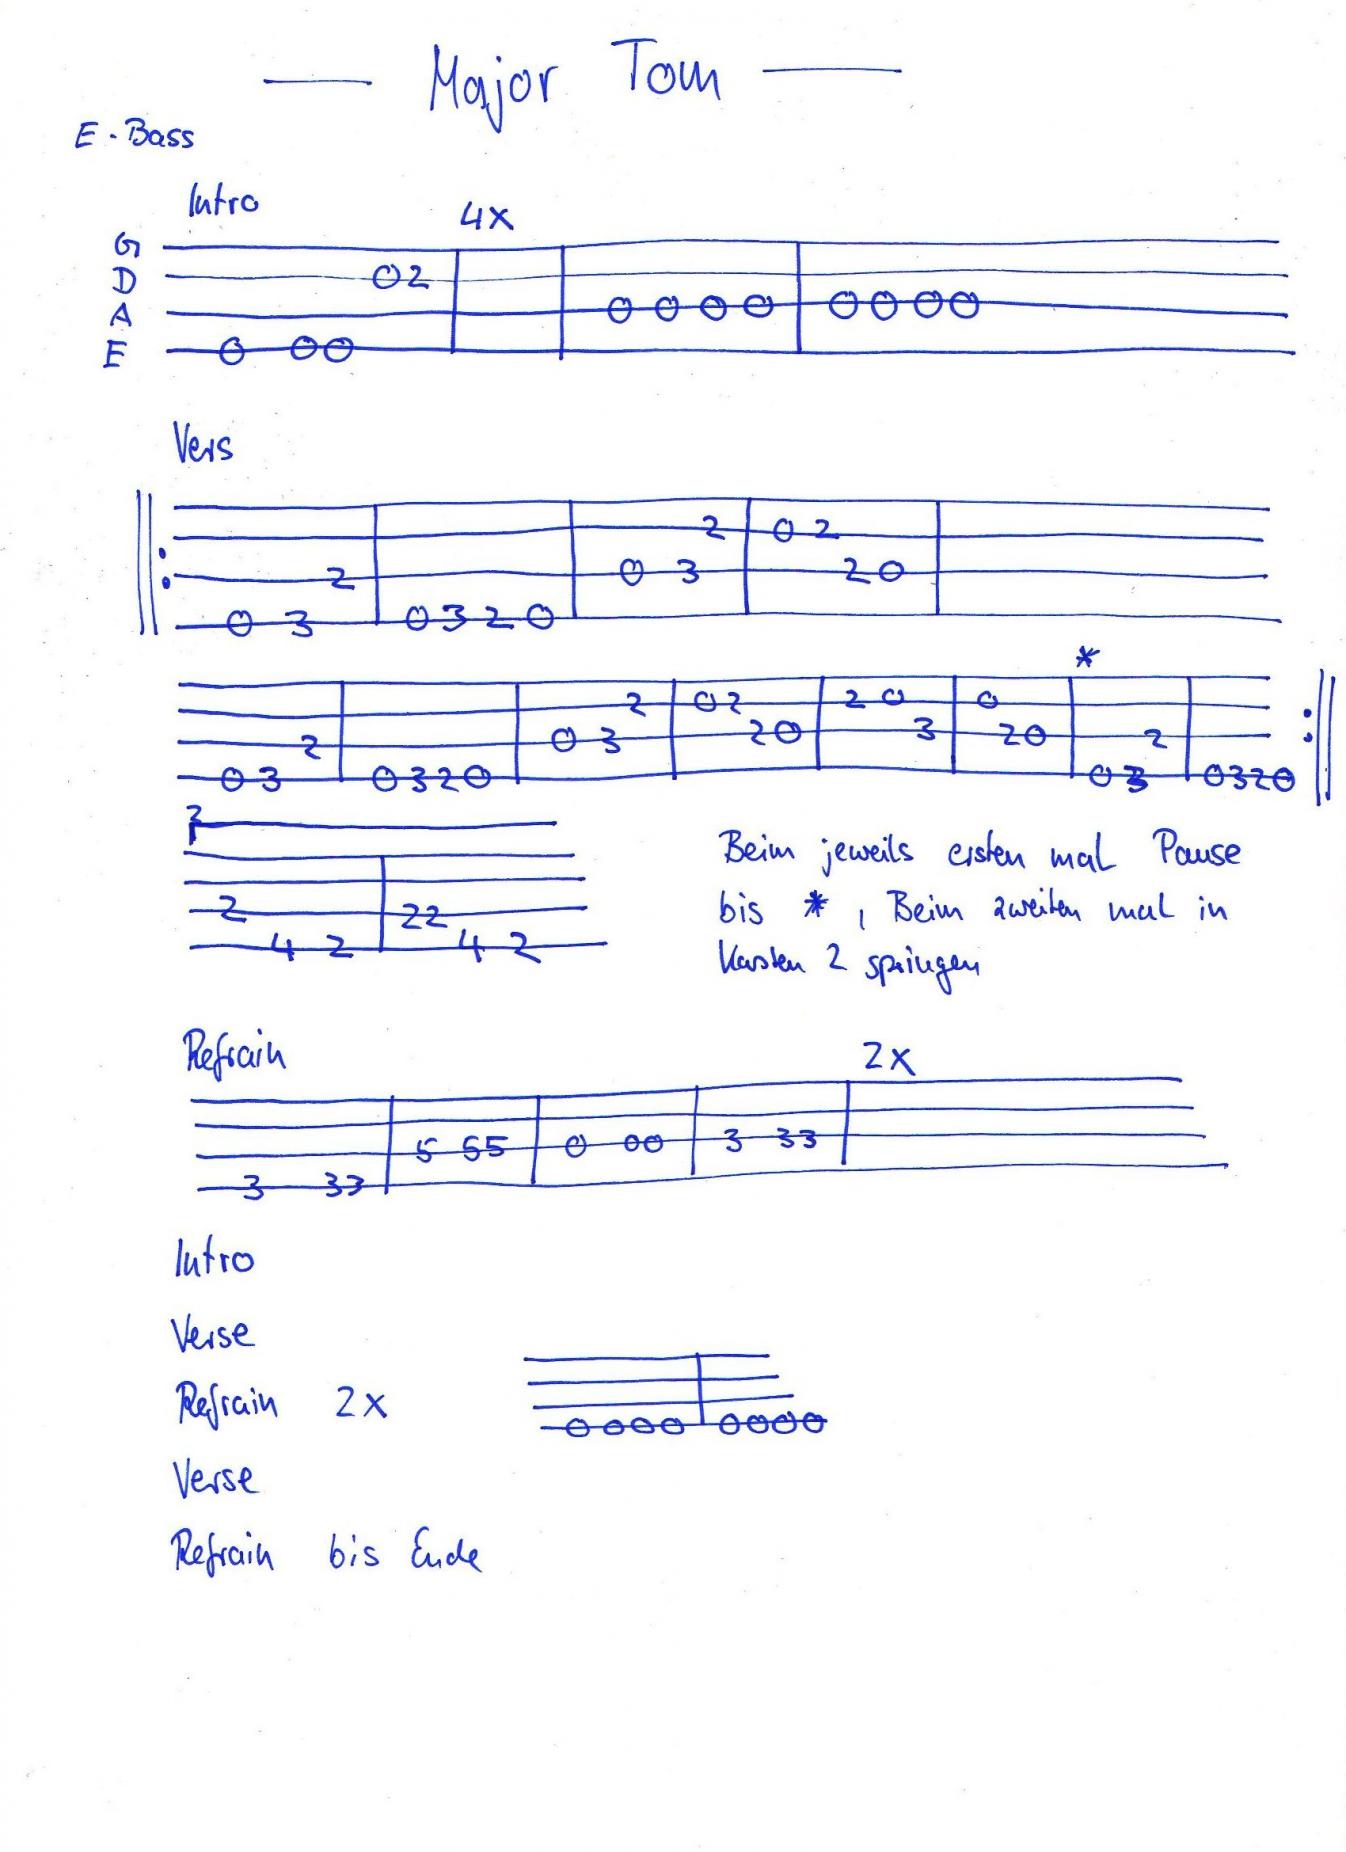 — Major Tom —
E-Bass
Intro 4x
G
D 0 2
A 0 0 0 0 0 0 0 0
E 0 0 0
Vers
2 0 2
2 0 3 2 0
0 3 0 3 2 0
*
2 0 2 2 0 0
2 0 3 2 0 3 2 0 2
0 3 0 3 2 0 0 3 0 3 2 0
2 2 2
4 2 4 2
Beim jeweils ersten mal Pause
bis *, Beim zweiten mal in
Kasten 2 springen
Refrain 2x
5 5 5 0 0 0 3 3 3
3 3 3
Intro
Verse
Refrain 2x
0 0 0 0 0 0 0 0
Verse
Refrain bis Ende